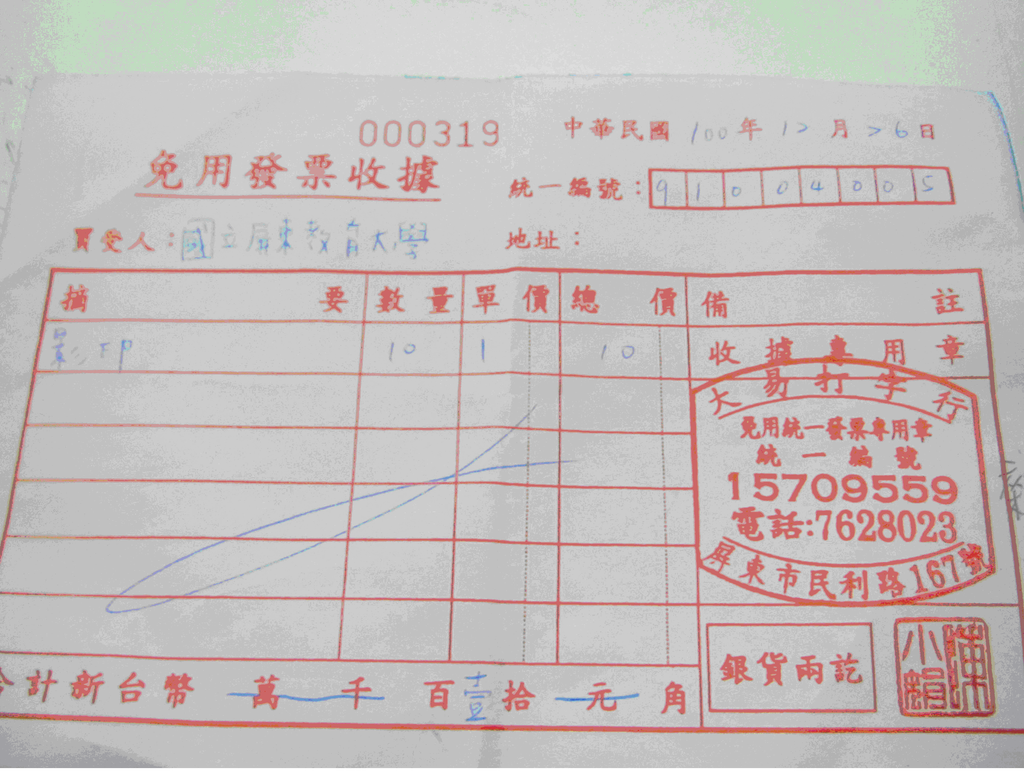 000319
中華民國 100年 12月 26日
免用發票收據
統一編號：91004005
買受人：國立屏東教育大學 地址：
摘要 數量 單價 總價 備註
影印 10 1 10 收據專用章
大易打字行
免用統一發票專用章
統一編號
15709559
電話:7628023
屏東市民利路167號
合計新台幣 萬 千 百壹拾 元 角
銀貨兩訖